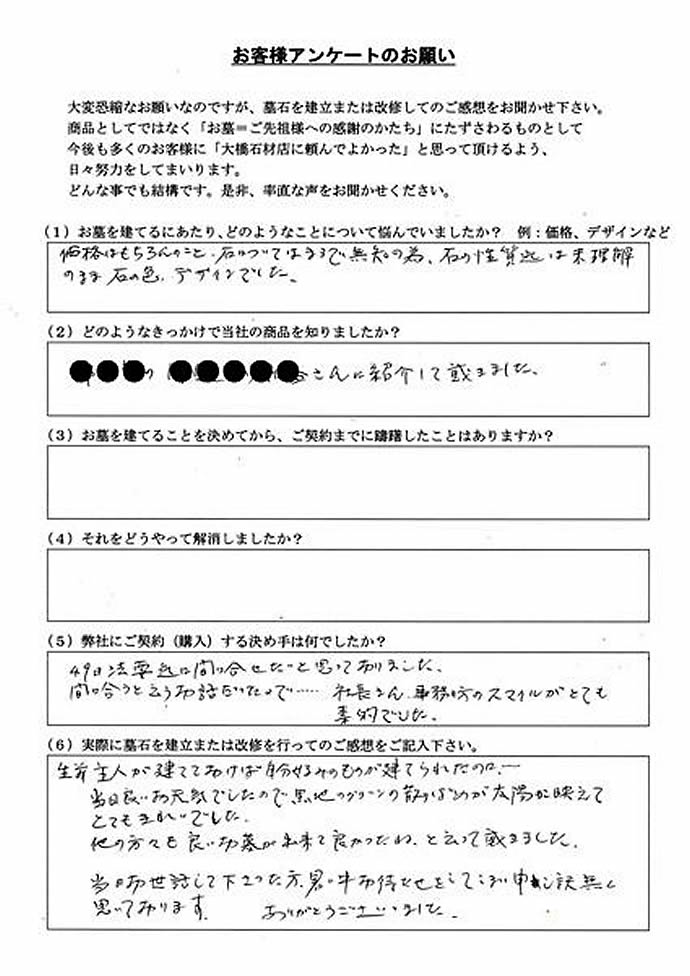 お客様アンケートのお願い
大変恐縮なお願いなのですが、墓石を建立または改修してのご感想をお聞かせ下さい。
商品としてではなく「お墓＝ご先祖様への感謝のかたち」にたずさわるものとして
今後も多くのお客様に「大橋石材店に頼んでよかった」と思って頂けるよう、
日々努力をしてまいります。
どんな事でも結構です。是非、率直な声をお聞かせください。
（1）お墓を建てるにあたり、どのようなことについて悩んでいましたか？　例：価格、デザインなど
価格はもちろんのこと、石については まるで無知の為、石の性質迄は未理解
のまま 石の色、デザインでした。
（2）どのようなきっかけで当社の商品を知りましたか？
さんに紹介して戴きました。
（3）お墓を建てることを決めてから、ご契約までに躊躇したことはありますか？
（4）それをどうやって解消しましたか？
（5）弊社にご契約（購入）する決め手は何でしたか？
49日法要迄に間に合せたいと思っておりました。
間に合うと云うお話だったので…… 社長さん、事務の方のスマイルがとても
素的でした。
（6）実際に墓石を建立または改修を行ってのご感想をご記入下さい。
生前主人が建てておけば自分好みのものが建てられたのに…
当日良いお天気でしたので黒地のグリーンの散りばめが太陽に映えて
とてもきれいでした。
他の方々も良いお墓が出来て良かったね、と云って戴きました。
当日お世話して下さった方、暑い中お待たせをしてしまい申し訳無く
思っております。 ありがとうございました。